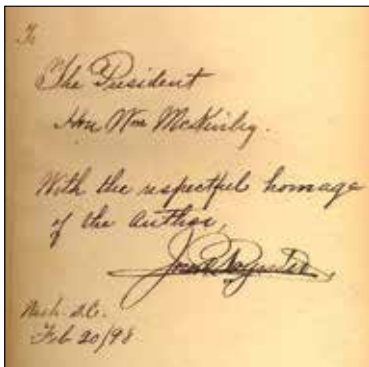 To
The President
Hon Wm McKinley.
With the respectful homage
of the author,
Wash. D.C.
Feb 20/98